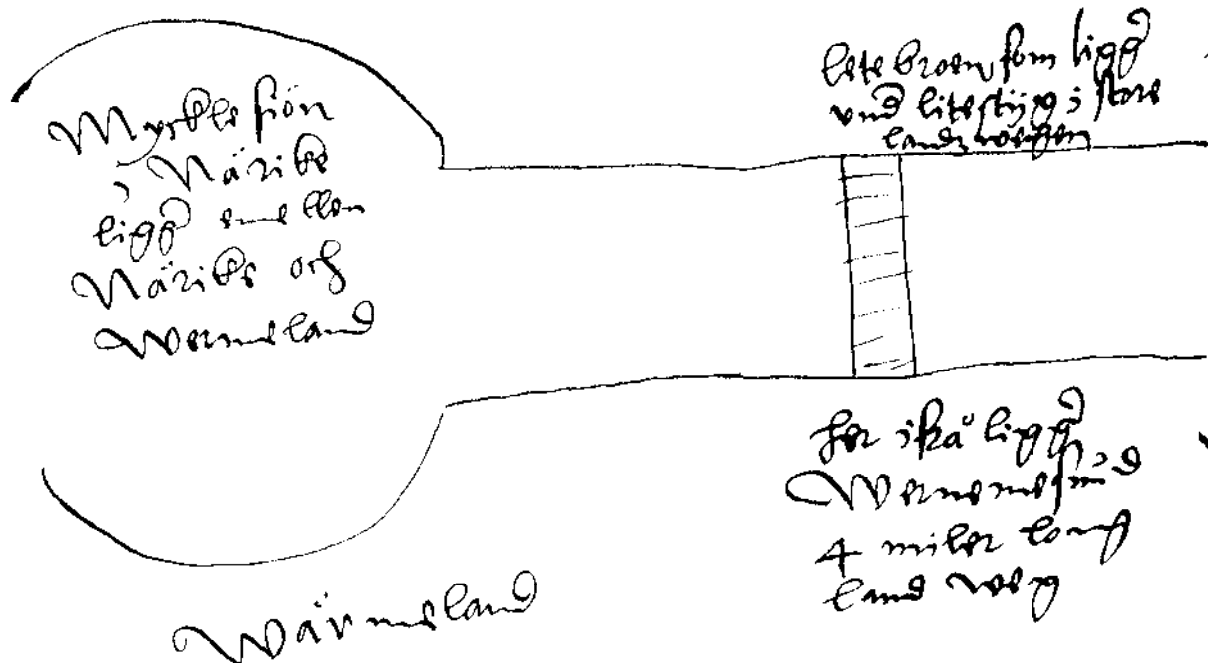 Myrkle siön
i Närike
ligg emellen
Närike och
Wermeland
lete broen som ligg
vnd litestijg i store
landzweijen
her iffrå ligg
Wernemesund
4 miler long
land weg
Wärmeland